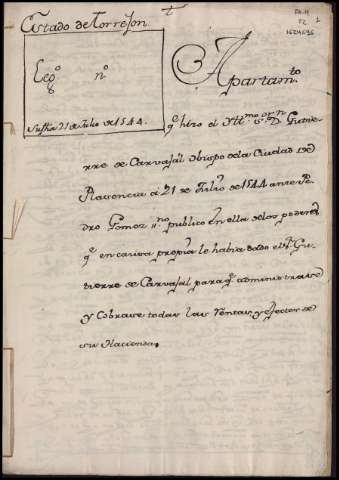 Estado de Torrejon
Leg.º nº
8
Su fha 21 de Julio de 1544.
Apartam.to
q.e hizo el Ill.mo S.or D.n Gutie
rre de Carvajal Obispo de la Ciudad de
Placencia á 21 de Julio de 1544 ante Pe
dro Gomez publico en ella de los poderes
q.e en causa propia le habia dado el Gu
tierre de Carvajal para q.e administrase
y Cobrase todas las Rentas y efectos de
su Hacienda.